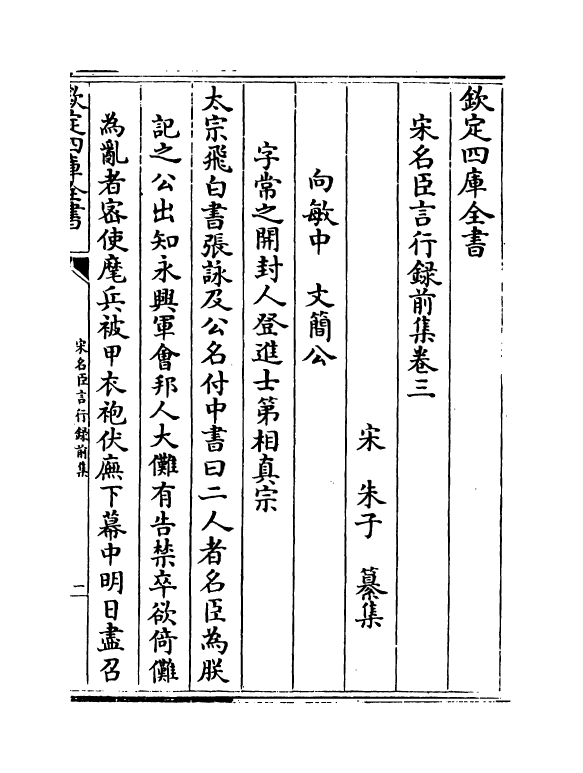 欽定四庫全書
宋名臣言行録前集卷三
宋　朱子　纂集
向敏中　文簡公
字常之開封人登進士第相真宗
太宗飛白書張詠及公名付中書曰二人者名臣為朕
記之公出知永興軍會邦人大儺有告禁卒欲倚儺
為亂者密使麾兵被甲衣袍伏廡下幕中明日盡召
欽定四庫全書
宋名臣言行録前集
二